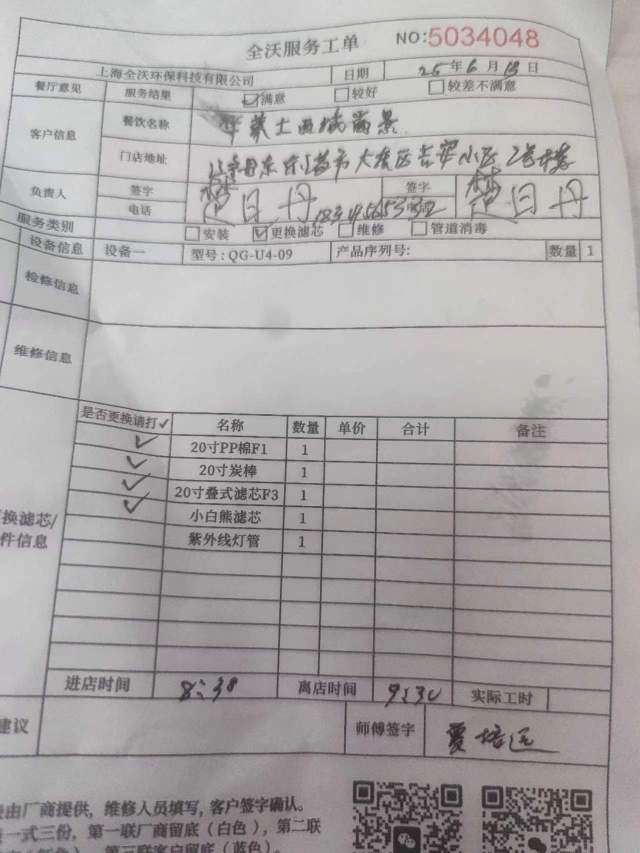 全沃服务工单 NO:5034048
上海全沃环保科技有限公司 日期 25年6月13日
餐厅意见 服务结果 满意 较好 较差不满意
客户信息 餐饮名称
门店地址
负责人 签字 楚日丹 签字 楚日丹
电话
服务类别 安装 更换滤芯 维修 管道消毒
设备信息 设备一 型号:QG-U4-09 产品序列号: 数量 1
检修信息
维修信息
是否更换请打✓ 名称 数量 单价 合计 备注
✓ 20寸PP棉F1 1
✓ 20寸炭棒 1
✓ 20寸叠式滤芯F3 1
✓ 小白熊滤芯 1
紫外线灯管 1
换滤芯/
件信息
进店时间 8:38 离店时间 9:30 实际工时
建议 师傅签字 贾培远
由厂商提供,维修人员填写,客户签字确认。
一式三份,第一联厂商留底(白色),第二联
第三联客户留底(蓝色)。